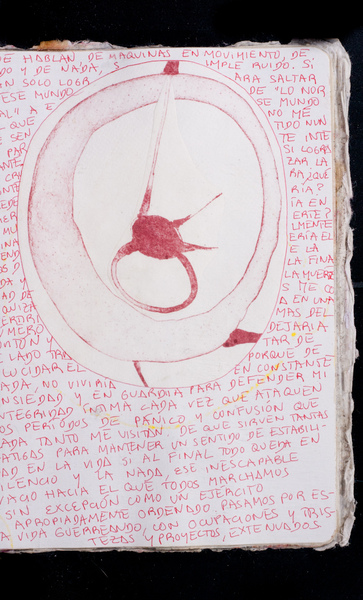 DE HABLAN DE MAQUINAS EN MOVIMIENTO, DE
DO Y DE NADA, S IMPLE RUIDO. SI
AN SOLO LOGRA ARA SALTAR
ESE MUNDO DE "LO NOR
AL" A E SE MUNDO
L QUE NO ME
SEN TIDO NUN
TE INTE
PAR SI LOGRA
ANTE ZAR LA
CRE RA ¿QUE
INTE RIA?
EDE ÍA EN
ERTE?
MU LMENTE
INA ERÍA EL
E LA
OS D LA FINA
DA Y LA MUERTE
AD DE S ME CO
ONIZA A EN UNA
ERTIRO MAS DEL
DEJARIA
TAR DE
LADO PORQUE DE
LUCIDAR EL EN CONSTANTE
ADA, NO VIVIRIA DEFENDER MI
NSIEDAD Y EN GUARDIA PARA
NTEGRIDAD ÍNTIMA CADA VEZ QUE ATAQUEN
OS PERÍODOS DE PANICO Y CONFUSIÓN QUE
ADA TANTO ME VISITAN. DE QUE SIRVEN TANTAS
FATIGAS PARA MANTENER UN SENTIDO DE ESTABILI-
DAD EN LA VIDA SI AL FINAL TODO QUEDA EN
SILENCIO Y LA NADA, ESE INESCAPABLE
VACIO HACIA EL QUE TODOS MARCHAMOS
SIN EXCEPCIÓN COMO UN EJERCITO
APROPIADAMENTE ORDENADO. PASAMOS POR ES-
A VIDA GUERREANDO, CON OCUPACIONES Y TRIS-
TEZAS Y PROYECTOS, EXTENUADOS.